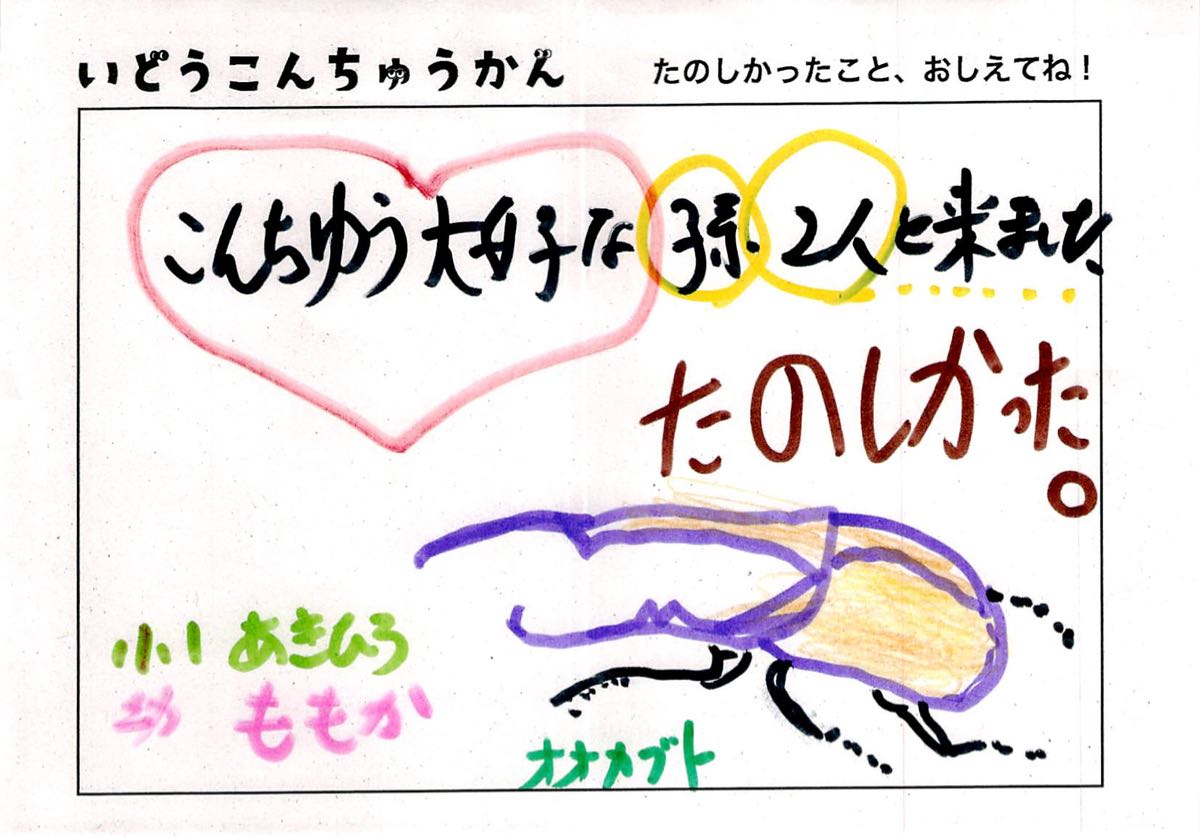 いどうこんちゅうかん
たのしかったこと、おしえてね！
こんちゆう大好な孫2人と来ました
たのしかった。
小1 あきひろ
ももか
オオカブト